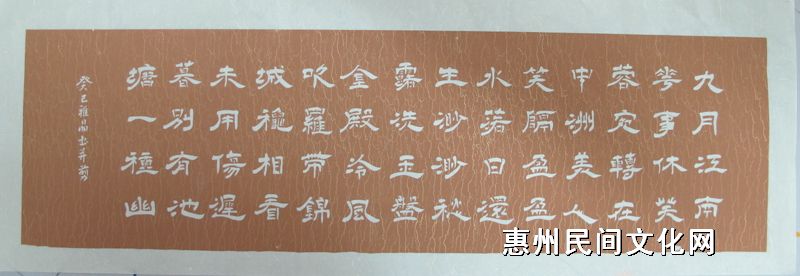 九月江南
華事休芙
蓉宛轉在
中洲美人
笑隔盈盈
水落日還
生渺渺愁
露洗玉盤
金殿冷風
吹羅帶錦
城穐相看
未用傷遲
暮別有池
塘一種幽
癸巳雅晶书并剪
惠州民间文化网